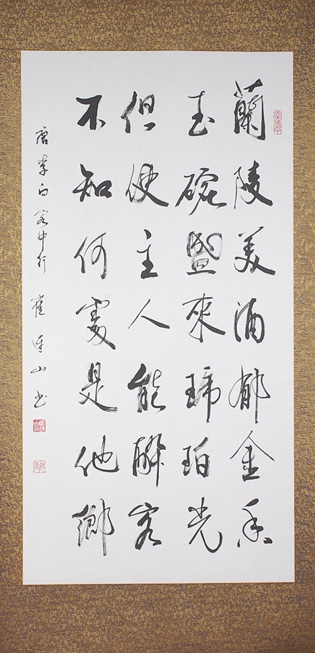 蘭陵美酒郁金香
玉碗盛來琥珀光
但使主人能醉客
不知何處是他鄉
唐李白客中行 崔山书